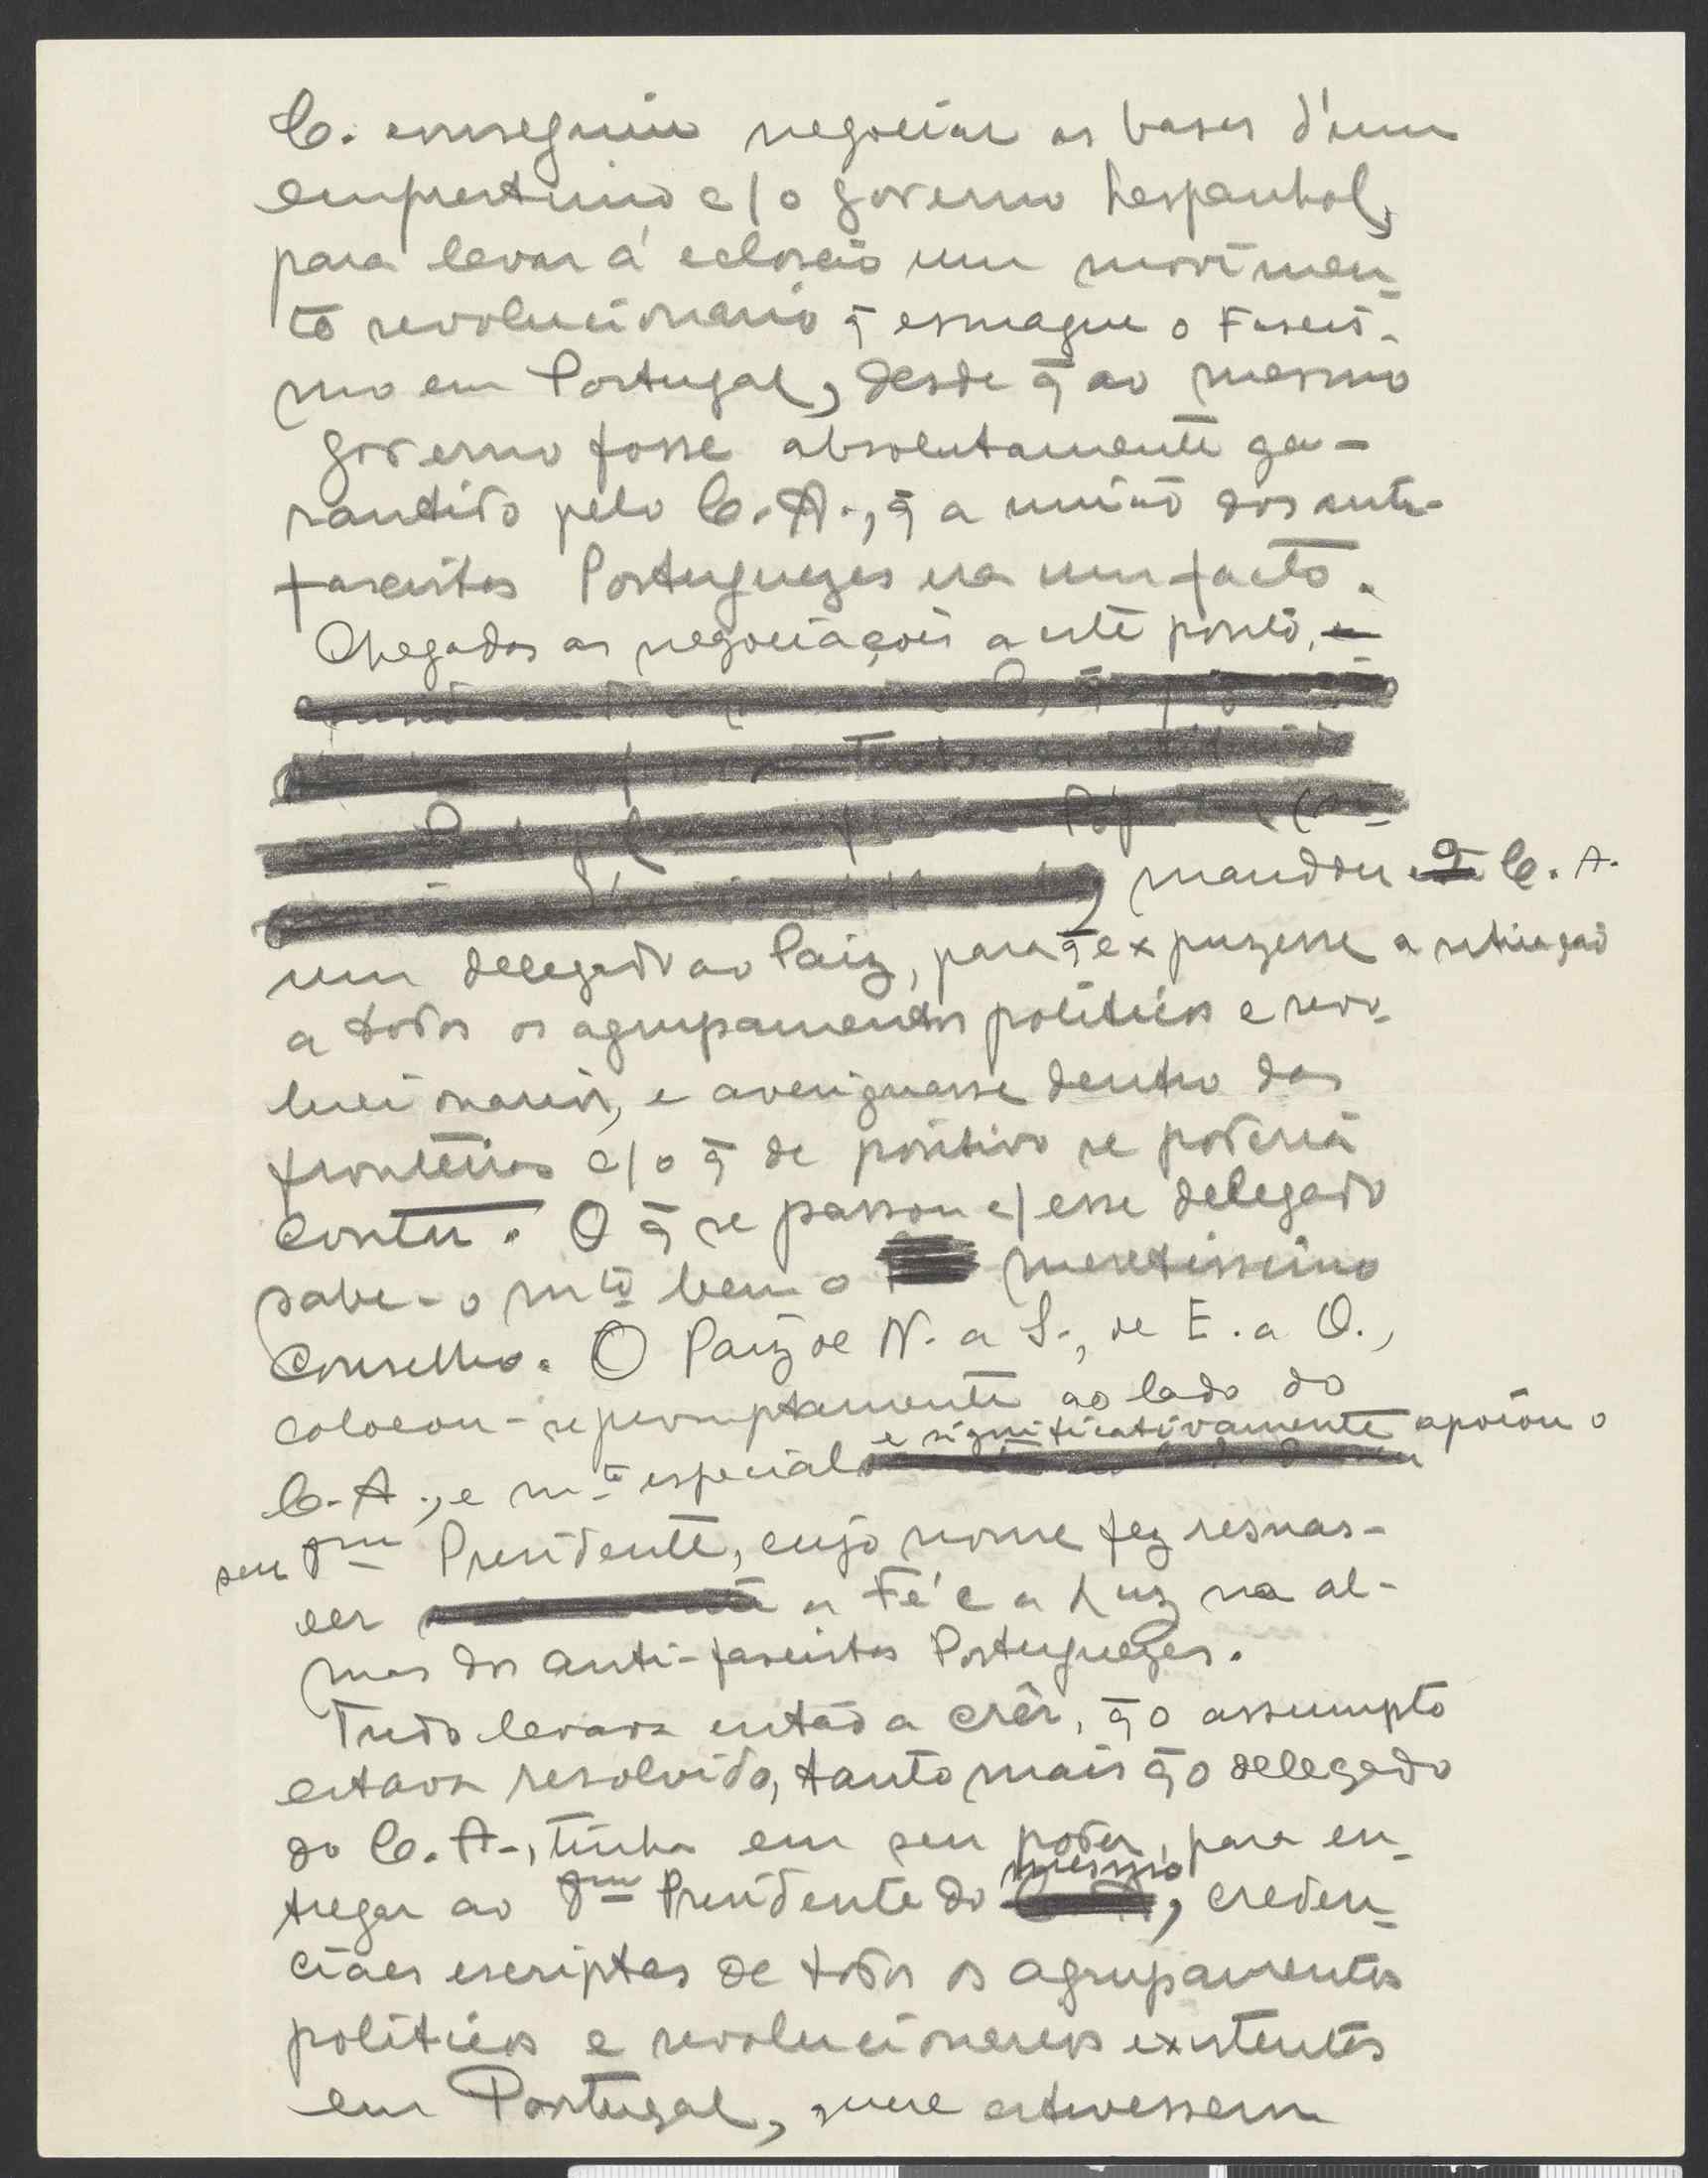 C. conseguiu negociar as bases d'um
emprestimo c/ o governo hespanhol,
para levar á eclosão um movimen-
to revolucionario q̃ esmague o Fascis-
mo em Portugal, desde q̃ ao mesmo
governo fosse absolutamente ga-
rantido pelo C. A., q̃ a união dos anti-
fascistas Portuguezes era um facto.
Chegadas as negociações a este ponto,
, mandou o C. A.
um delegado ao Paiz, para q̃ expuzesse a situação
a todos os agrupamentos politicos e revo-
lucionarios, e averiguasse dentro das
fronteiras c/ o q̃ de positivo se poderia
contar. O q̃ se passou c/ esse delegado
sabe-o mto bem o meretissimo
Conselho. O Paiz de N. a S., de E. a O.,
colocou-se promptamente ao lado do
e significativamente apoiou o
C. A., e mto especial
seu Presidente, cujo nome fez resnas-
cer a Fé e a Luz na al-
mas dos anti-fascistas Portuguezes.
Tudo levava então a crêr, q̃ o assumpto
estava resolvido, tanto mais q̃ o delegado
do C. A., tinha em seu poder, para en-
tregar ao Presidente do mesmo, creden-
ciaes escriptas de todos os agrupamentos
politicos e revolucionarios existentes
em Portugal, estivessem